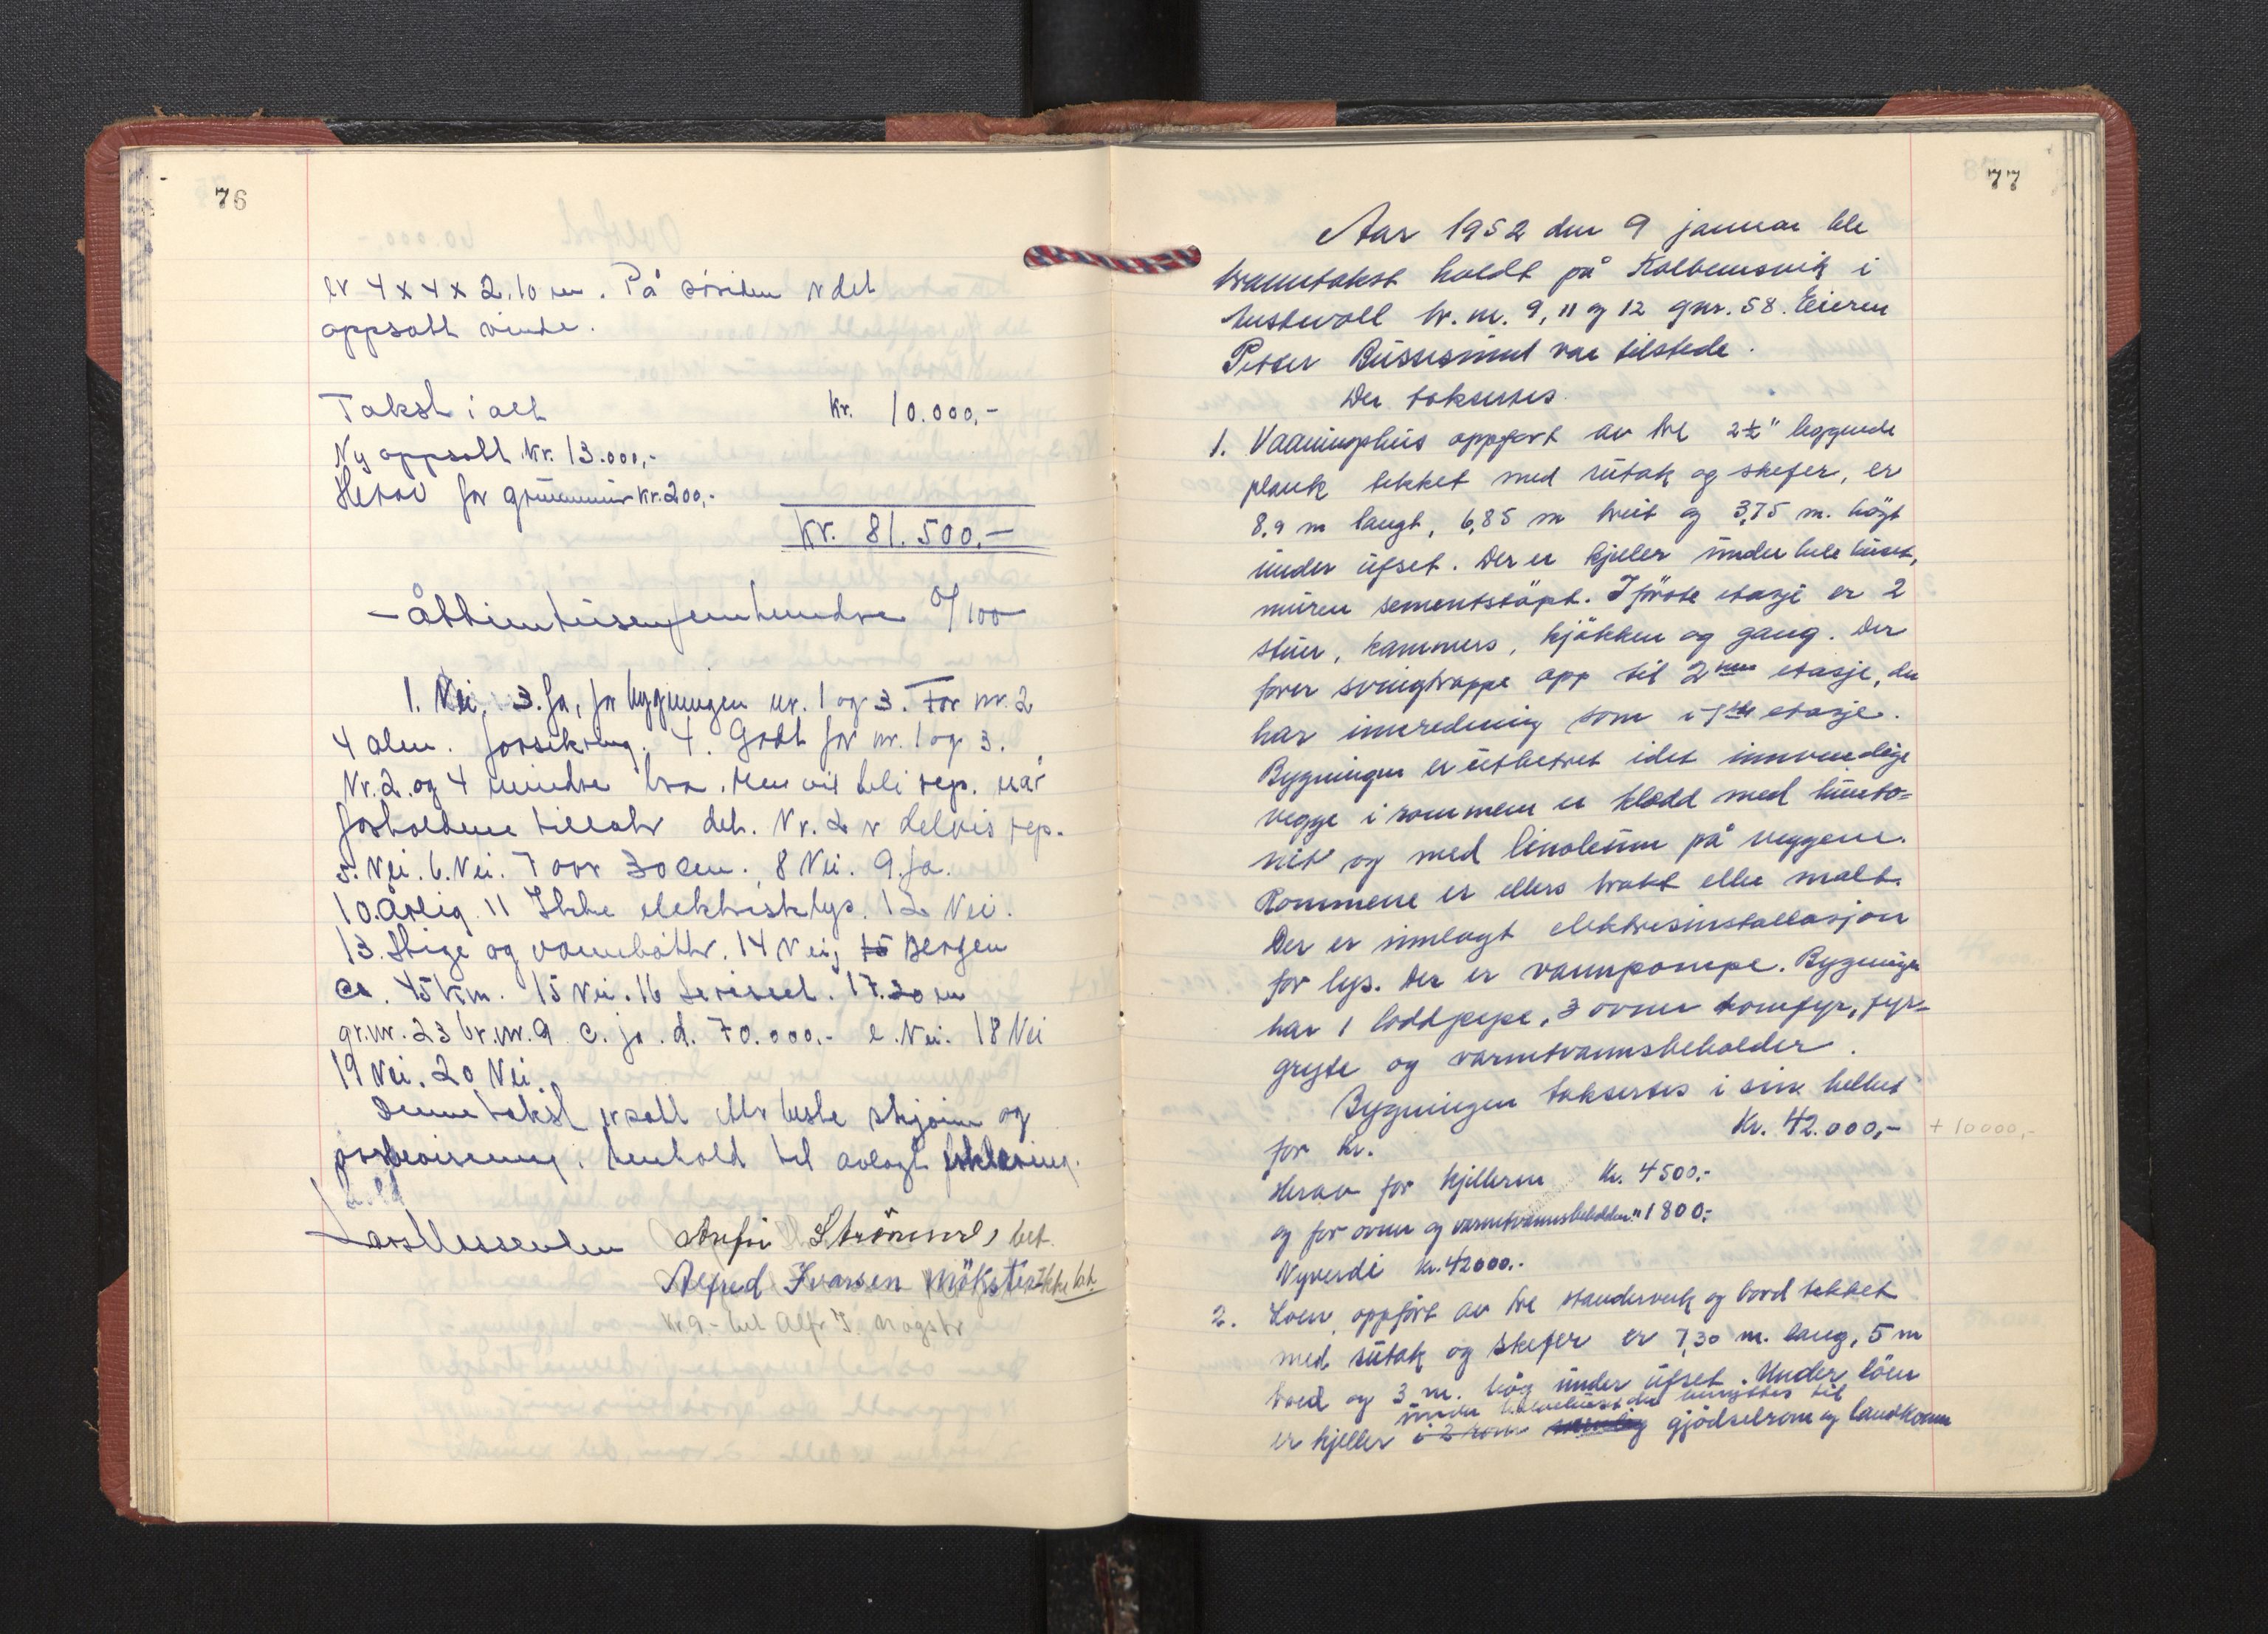 76
er 4 x 4 x 2.10 m. På sörsiden er det
oppsatt vindu.
Takst i alt Kr. 10.000,-
Ny oppsatt Kr. 13.000,-
Herav for grunnmur Kr. 200,-
Kr. 81.500.-
- åttientusenfemhundre 0/100
1. Nei, 3. Ja, for bygningen nr. 1 og 3. For nr. 2
4 alm. forsikring. 4. Godt for nr. 1 og 3.
Nr. 2. og 4 mindre bra. Men vil bli rep. når
forholdene tillater det. Nr. 2 er delvis rep.
5. Nei. 6. Nei. 7 over 30 cm. 8 Nei. 9. Ja.
10. Årlig. 11 Ikke elektrisk lys. 12 Nei.
13. Stige og vannbötter. 14 Nei, 15 Bergen
ca. 45 km. 15 Nei. 16 . 17. 20 m
gr.nr. 23 br.nr. 9 c. ja. d. 70.000.- e. Nei. 18 Nei
19 Nei. 20 Nei.
Denne takst er satt etter beste skjönn og
overbevisning i henhold til avlagt erklæring.
Lars Alfred Strömnes bet.
Alfred Ivarsen Mökster ikke bet.
Kr 9.- bet Alfr I. Mogstr
77
Aar 1952 den 9 januar ble
branntakst holdt på Kolbeinsvik i
Austevoll br. nr. 9, 11 og 12 gnr. 58. Eieren
Petter Bussesund var tilstede.
Der taksertes.
1. Vaaningshus oppfört av tre 2½" leggende
plank tekket med sutak og skefer, er
8,9 m langt, 6,85 m breit og 3,75 m. högt
under ufset. Der er kjeler under hele huset,
muren sementstöpt. I förste etasje er 2
stuer, kammers, kjökken og gang. Der
förer svingtrappe opp til 2nen etasje, den
har innredning som i 1ste etasje.
Bygningen er utbetret idet innvendige
vegge i rommene er klædd med hunto=
nit og med linoleum på veggene.
Rommene er ellers trakt eller malt.
Der er innlagt elektrisinstallasjon
for lys. Der er vannpompe. Bygningen
har 1 loddpipe, 3 ovner komfyr, fyr=
gryte og varmtvannsbeholder.
Bygningen taksertes i sin helhet
for kr. Kr. 42.000,- + 10000,-
Herav for kjelleren Kr. 4500:-
og for ovner og varmtvannsbeholder " 1800:-
Nyverdi kr. 42000.-
2. Löen oppfört av tre standerverk og bord tekket
med sutak og skefer er 7,30 m. lang, 5 m
bred og 3 m. hög under ufset. Under löen
under höladuet der benyttes til
er kjeller i 2 rom gjödselrom og landkom